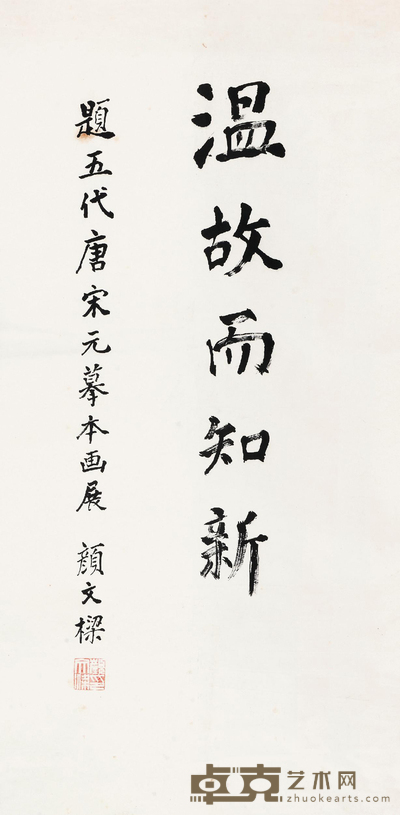 温故而知新
題五代唐宋元摹本画展 顔文樑
卓克艺术网
zhuokearts.com